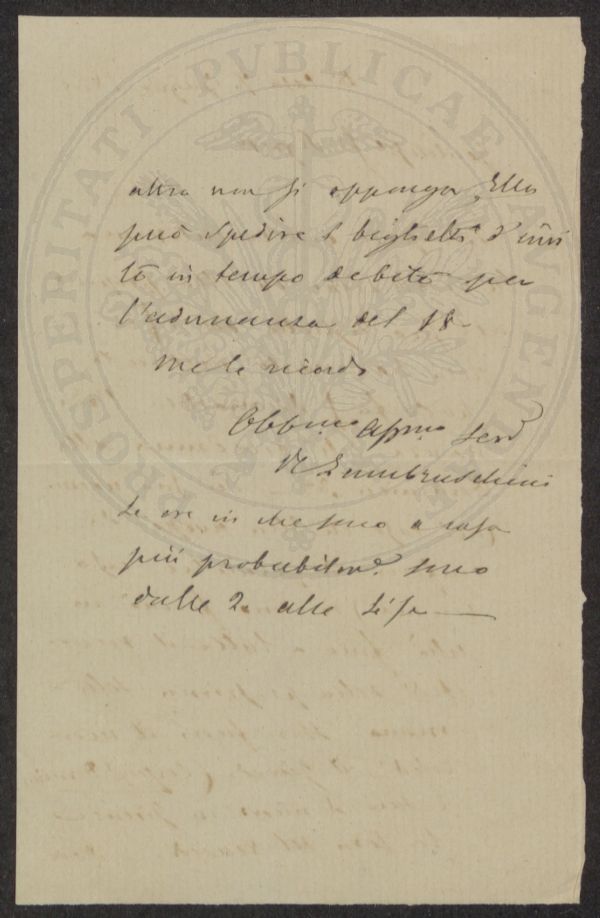 PROSPERITATI PVBLICAE AVGENDAE
altro non si opponga, Ella
può spedire i biglietti d'invi
to in tempo debito per
l'adunanza del 18.
Me le ricordo
Obbmo Affmo Serv
R Lambruschini
Le ore in che sono a casa
più probabilme. sono
dalle 2. alle